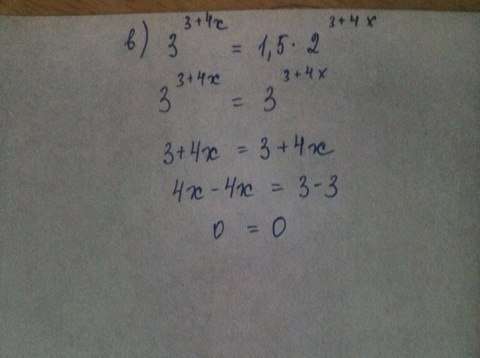 в) 3^{3+4x} = 1,5 · 2^{3+4x}
3^{3+4x} = 3^{3+4x}
3+4x = 3+4x
4x-4x = 3-3
0 = 0